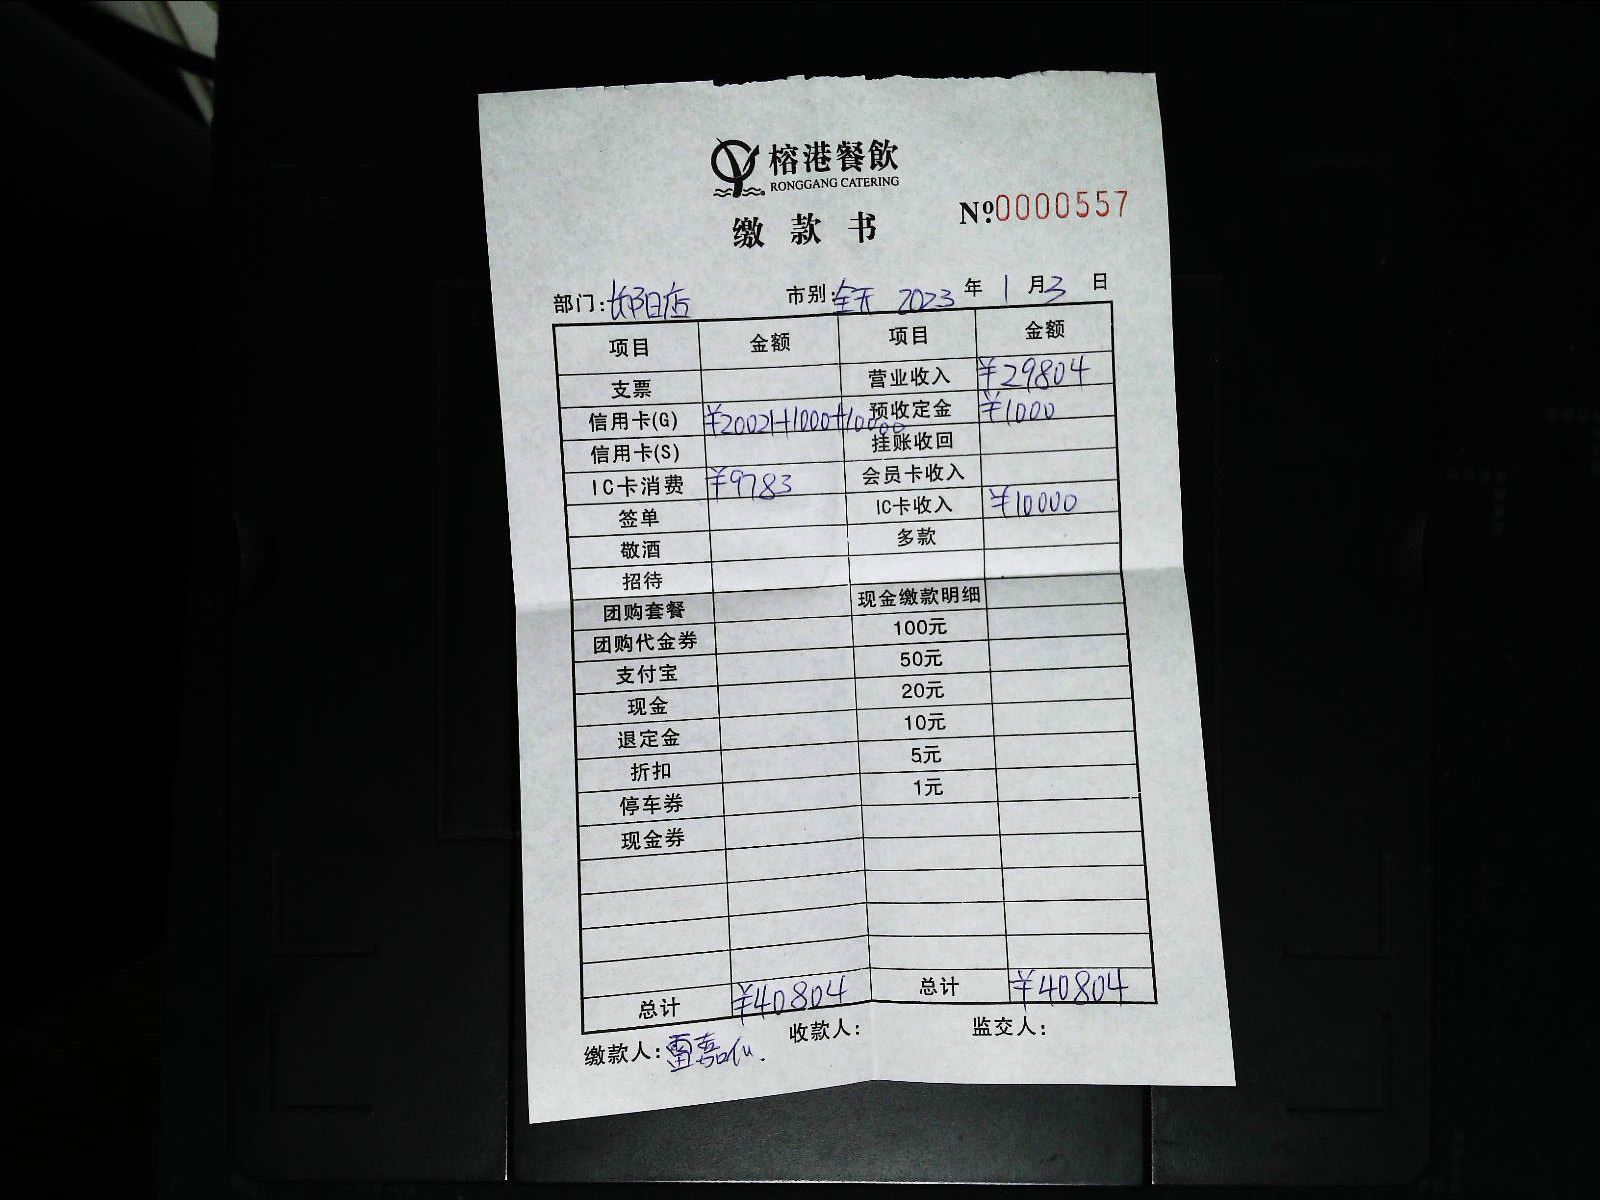 榕港餐飲
RONGGANG CATERING
缴款书
№0000557
部门: 市别:全天 2023年1月3日
项目 金额 项目 金额
支票 营业收入 ¥29804
信用卡(G) ¥20021+1000+10000 预收定金 ¥1000
信用卡(S) 挂账收回
IC卡消费 ¥9783 会员卡收入
签单 IC卡收入 ¥10000
敬酒 多款
招待
团购套餐 现金缴款明细
团购代金券 100元
支付宝 50元
现金 20元
退定金 10元
折扣 5元
停车券 1元
现金券
总计 ¥40804 总计 ¥40804
缴款人:雷嘉 收款人: 监交人: